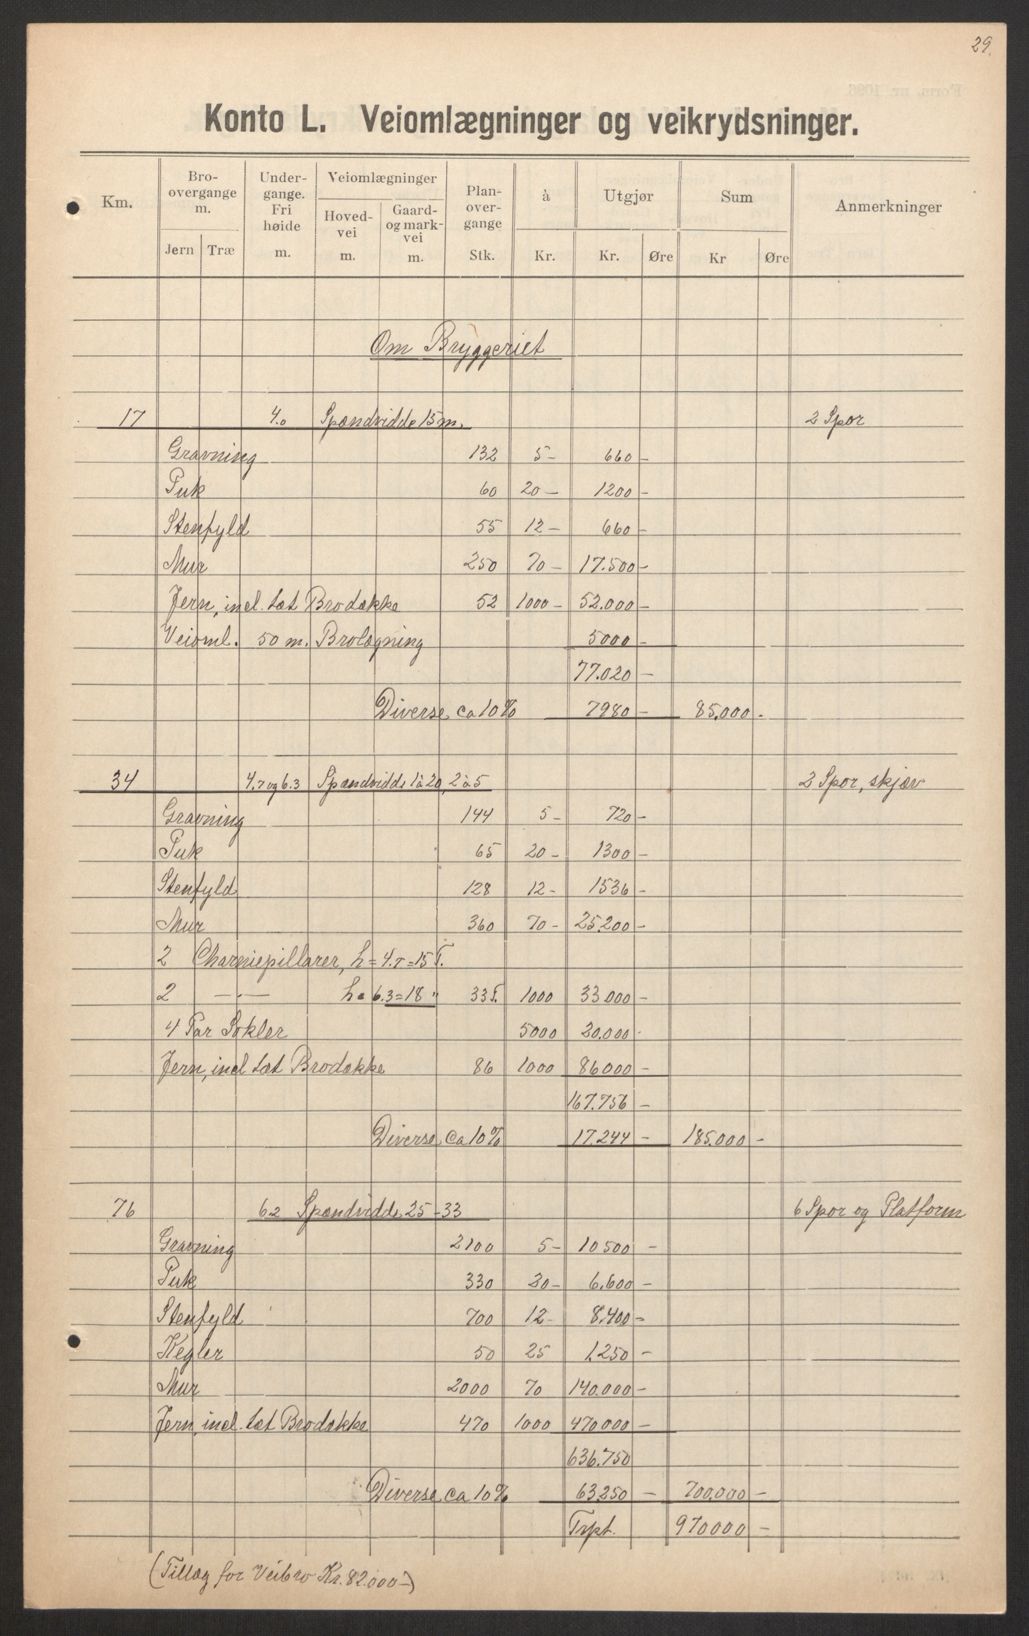 29.
Konto L. Veiomlægninger og veikrydsninger.
Km. Bro-overgange m. Under-gange. Fri høide m. Veiomlægninger Plan-over-gange Stk. à Utgjør Sum Anmerkninger
Jern Træ Hoved-vei m. Gaard-og mark-vei m. Kr. Kr. Øre Kr Øre
Om Bryggeriet
17 4.0 Spændvidde 15 m. 2 Spor
Gravning 132 5- 660 -
Puk 60 20- 1200 -
Stenfyld 55 12- 660 -
Mur 250 70- 17.500 -
Jern, incl. tæt Brodække 52 1000- 52.000 -
Veioml. 50 m. Brolægning 5000 -
77.020 -
Diverse ca 10% 7980 - 85.000 -
34 4.7 og 6.3 Spændvidde 1 à 20, 2 à 5 2 Spor, skjæv
Gravning 144 5- 720 -
Puk 65 20- 1300 -
Stenfyld 128 12- 1536 -
Mur 360 70- 25.200 -
2 Charniepillarer, h = 4.7 = 15 T.
2 —"— h = 6.3 = 18 " 33 T. 1000 33.000 -
4 Par Sokler 5000 20.000 -
Jern, incl tæt Brodække 86 1000 86000 -
167.756 -
Diverse Ca 10% 17.244 - 185.000 -
76 6.2 Spændvidde 25-33 6 Spor og Platform
Gravning 2100 5- 10500 -
Puk 330 20- 6.600 -
Stenfyld 700 12- 8.400 -
Kegler 50 25 1.250 -
Mur 2000 70 140.000 -
Jern, incl. tæt Brodække 470 1000 470.000 -
636.750
Diverse ca 10% 63250 - 700.000 -
Trpt. 970000 -
(Tillæg for Veibro Kr. 82.000-)